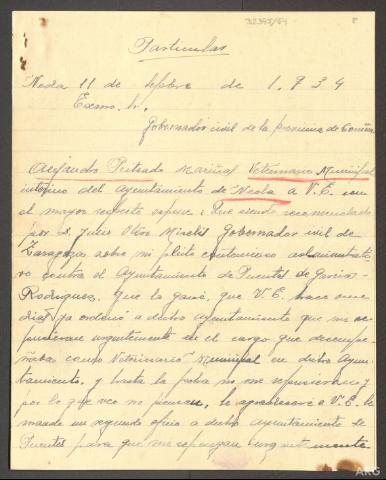 32393/54
Particular
Neda 11 de Sepbre de 1.934
Excmo. Sr.
Gobernador civil de la provincia de Coruña
Alejandro Peiteado Mariñas Veterinario Municipal
interino del Ayuntamiento de Neda a V.E. con
el mayor respeto expone: Que siendo recomendado
por D. Julio Otero Mirelis Gobernador civil de
Zaragoza sobre mi pleito contencioso administrati-
vo contra el Ayuntamiento de Puentes de Garcia-
Rodriguez, que lo gané, que V.E. hace once
dias ya ordenó a dicho Ayuntamiento que me re-
pusieran urgentemente en el cargo que desempe-
ñaba como Veterinario Municipal en dicho Ayun-
tamiento, y hasta la fecha no me repusieron y
por lo que veo no piensan, le agradeceré a V.E. le
mande un segundo oficio a dicho Ayuntamiento de
Puentes para que me repongan urgentemente
ARG